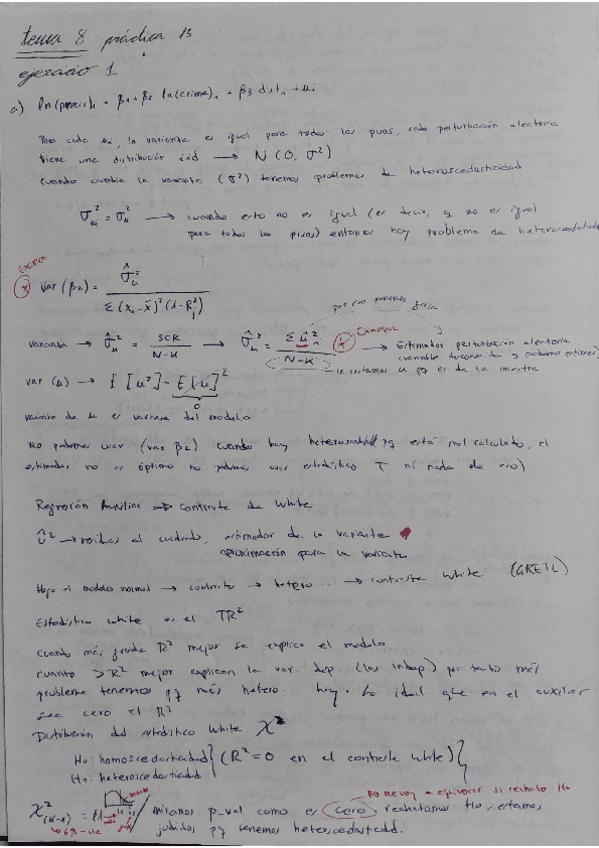 tema 8 práctica 13
ejercicio 1
a) ln(precio)i = β1 + β2 ln(crime)i + β3 disti + ui
Para cada ui, la varianza es igual para todos los pisos, cada perturbación aleatoria
tiene una distribución iid → N(0, σ²)
Cuando cambia la varianza (σ²) tenemos problemas de heteroscedasticidad
σ²ui = σ²u → cuando esto no es igual (es decir, q no es igual
para todos los pisos) entonces hay problema de heteroscedasticidad
var(β2) = σ̂²u / Σ(xi - x̄)²(1-R²j)
por eso ponemos
varianza → σ̂²u = SCR / N-K → σ̂²u = Σ û²i / N-K → Estimador perturbación aleatoria
(variable desconocida q podemos estimar)
le restamos pq es de la muestra
var(u) → E[u²] - E[u]²
0
varianza de u es varianza del modelo
No podemos usar (var β2) cuando hay pq está mal calculado, el
estimador no es óptimo no podemos usar estadístico T ni nada de eso)
Regresión Auxiliar → contraste de White
û² → residuos al cuadrado, estimador de la varianza
aproximación para la varianza
Hago el modelo normal → contraste → hetero... → contraste white (GRETL)
Estadístico white es el TR²
Cuando más grande R² mejor se explica el modelo
cuanto > R² mejor explican la var. dep (las indep) por tanto más
problema tenemos pq más hetero. hay. Lo ideal que en el auxiliar
sea cero el R²
Distribución del estadístico White χ²
H0: homoscedasticidad
H1: heteroscedasticidad
(R²=0 en el contraste white)
no me voy a equivocar si rechazo H0
χ²(k-1) = miramos p_val como es cero rechazamos H0, estamos
jodidos pq tenemos heteroscedasticidad.